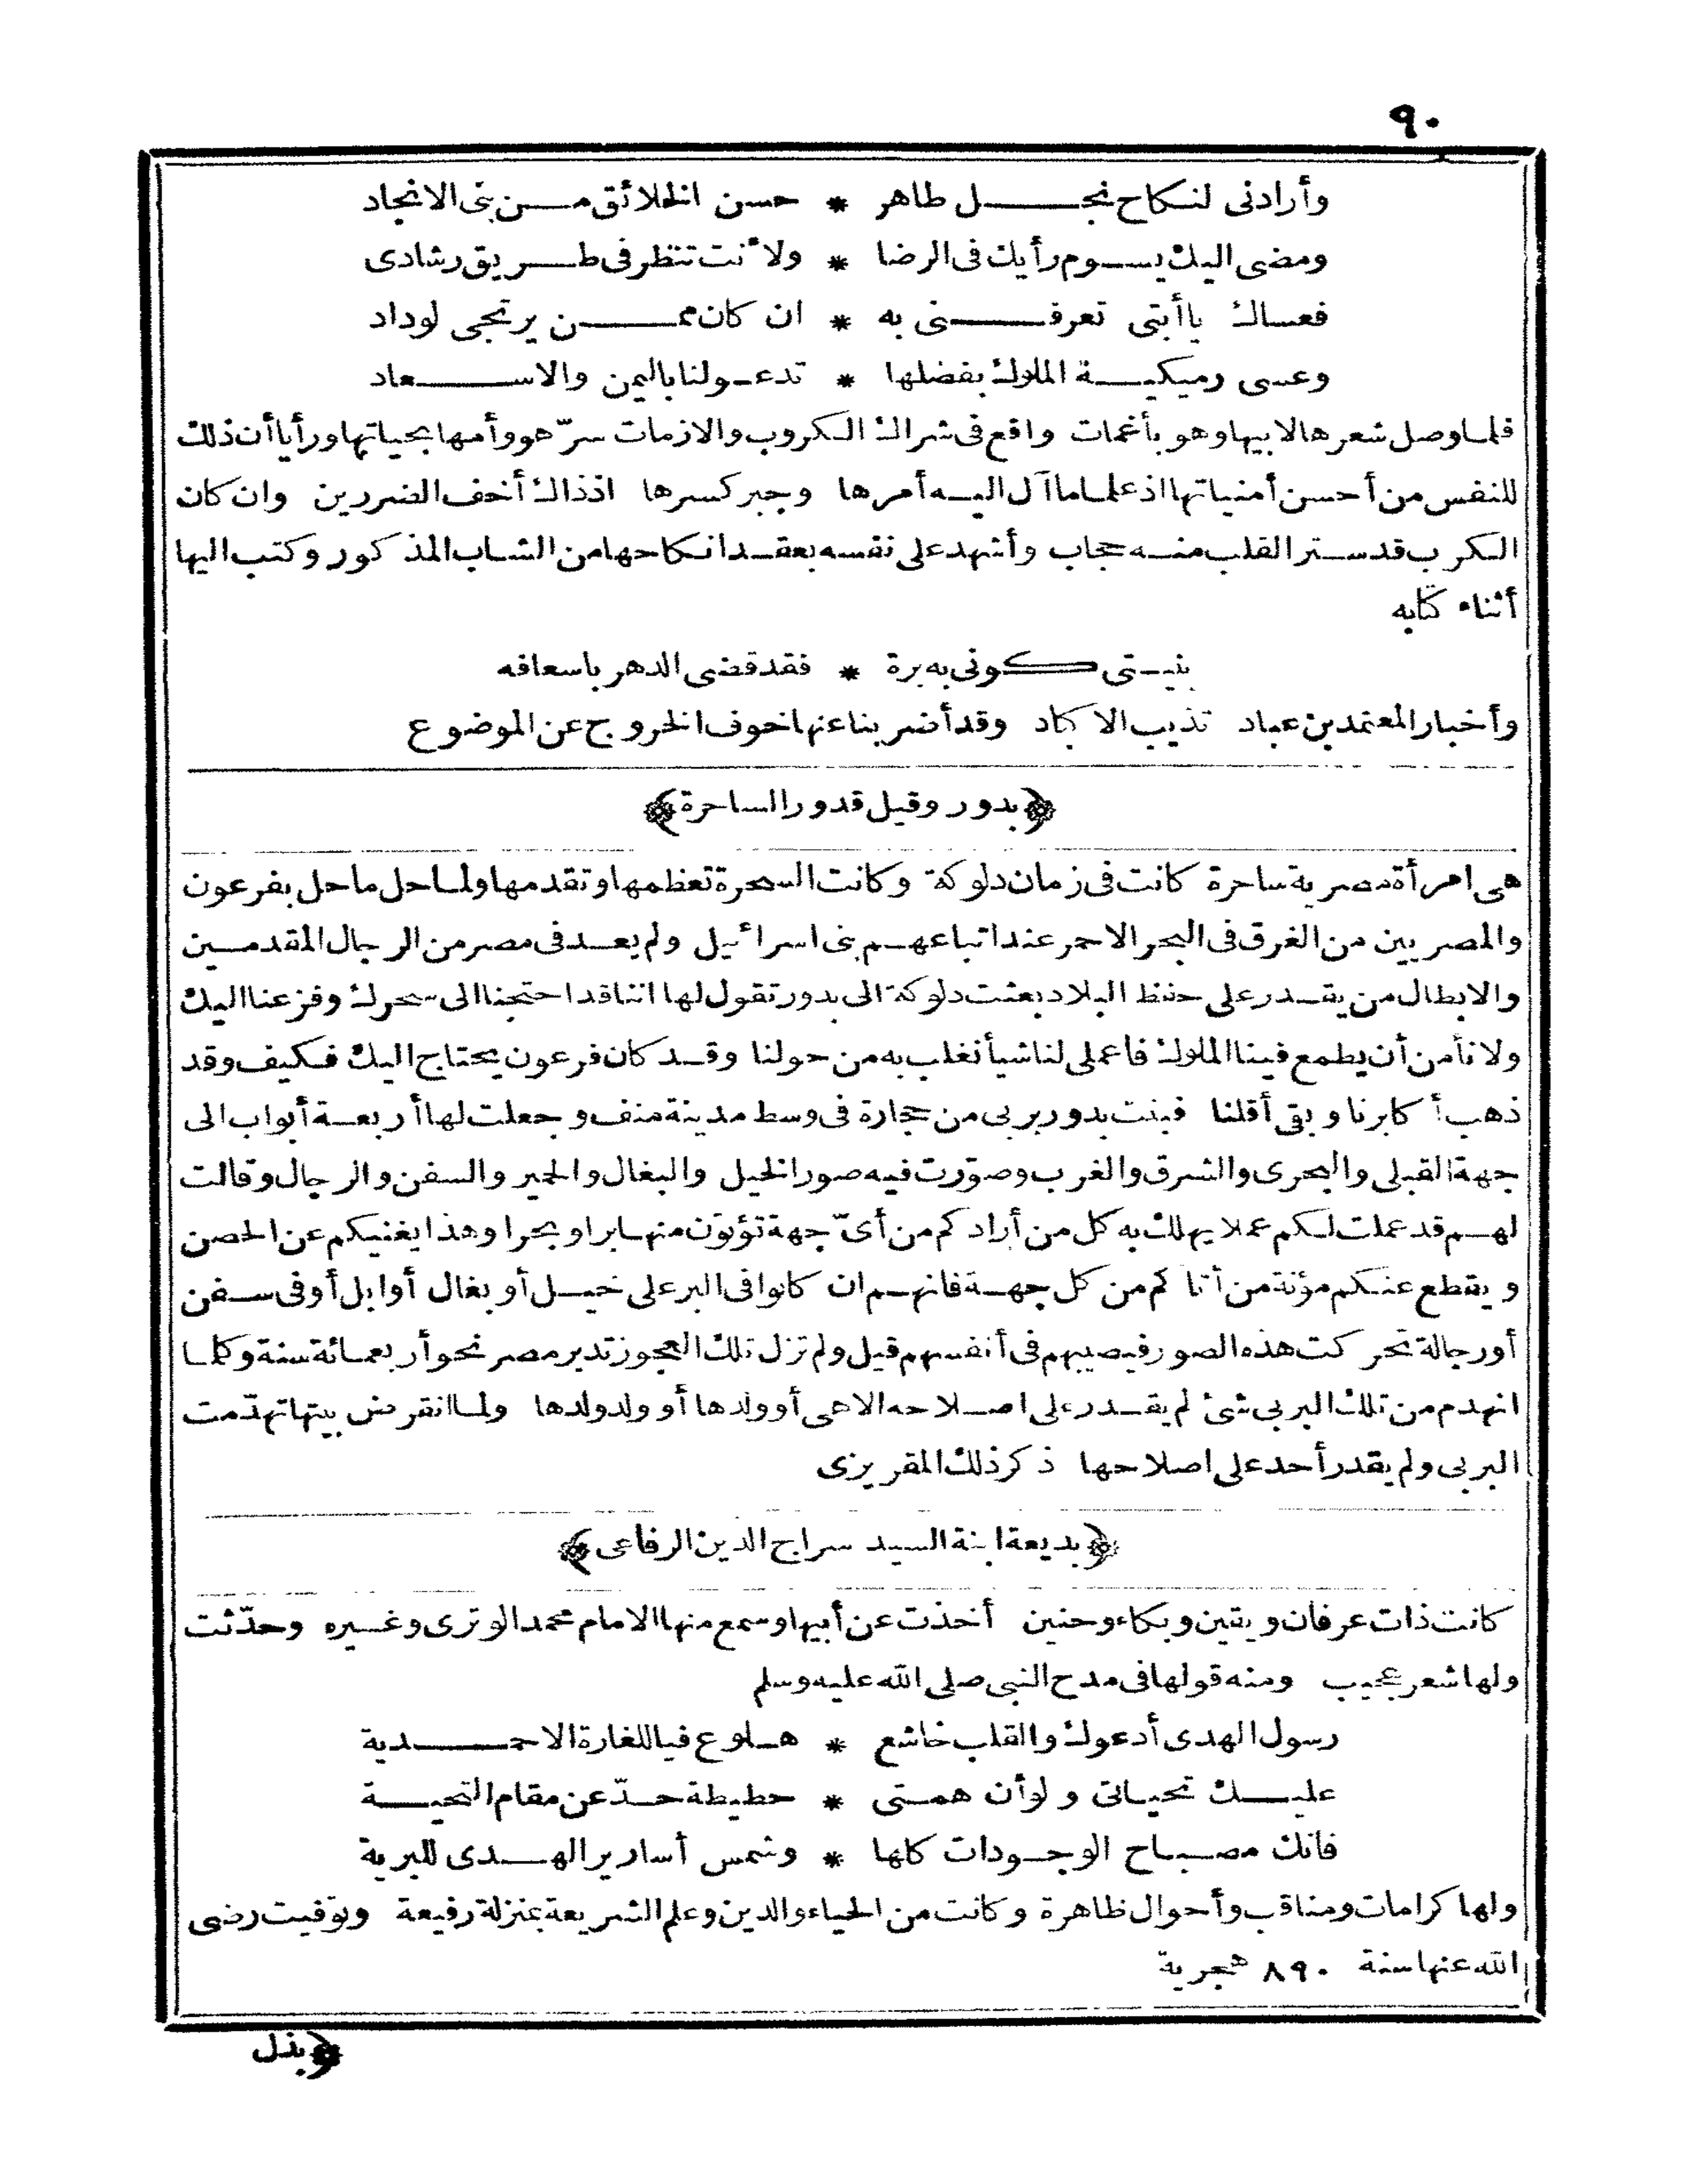 ٩٠
وأرادنى لنكاح نجل طاهر * حسن الخلائق من بنى الانجاد
ومضى اليك يسوم رأيك فى الرضا * ولا ٔنت تنظر فى طريق رشادى
فعساك ياأبتى تعرفنى به * ان كان ممن يرتجى لوداد
وعسى رميكية الملوك بفضلها * تدعو لنا باليمن والاسعاد
فلما وصل شعرها لابيها وهو بأغمات واقع فى شراك الكروب والازمات سرّ هو وأمها بحياتها ورأيا أن ذلك
للنفس من أحسن أمنياتها اذ علما ما آل اليه أمرها وجبر كسرها اذ ذاك أخف الضررين وان كان
الكرب قد ستر القلب منه حجاب وأشهد على نفسه بعقد انكاحها من الشاب المذكور وكتب اليها
أثناء كتابه
بنيتى كونى به برة * فقد قضى الدهر باسعافه
وأخبار المعتمد بن عباد تذيب الاكباد وقد أضربنا عنها خوف الخروج عن الموضوع
﴿بدور وقيل قدور الساحرة﴾
هى امرأة مصرية ساحرة كانت فى زمان دلوكة وكانت السحرة تعظمها وتقدمها ولما حل ما حل بفرعون
والمصريين من الغرق فى البحر الاحمر عند اتباعهم بنى اسرائيل ولم يعد فى مصر من الرجال المقدمين
والابطال من يقدر على حفظ البلاد بعثت دلوكة الى بدور تقول لها اننا قد احتجنا الى سحرك وفزعنا اليك
ولا نأمن أن يطمع فينا الملوك فاعملى لنا شيأ نغلب به من حولنا وقد كان فرعون يحتاج اليك فكيف وقد
ذهب أكابرنا وبقى أقلنا فبنت بدور بربى من حجارة فى وسط مدينة منف وجعلت لها أربعة أبواب الى
جهة القبلى والبحرى والشرق والغرب وصوّرت فيه صور الخيل والبغال والحمير والسفن والرجال وقالت
لهم قد عملت لكم عملا يهلك به كل من أرادكم من أىّ جهة تؤتون منها برا وبحرا وهذا يغنيكم عن الحصن
ويقطع عنكم مؤنة من أتاكم من كل جهة فانهم ان كانوا فى البر على خيل أو بغال أو ابل أو فى سفن
أو رجالة تحركت هذه الصور فيصيبهم فى أنفسهم قيل ولم تزل تلك العجوز تدبر مصر نحو أربعمائة سنة وكلما
انهدم من تلك البربى شئ لم يقدر على اصلاحه الا هى أو ولدها أو ولد ولدها ولما انقرض بيتها تهدّمت
البربى ولم يقدر أحد على اصلاحها ذكر ذلك المقريزى
﴿بديعة ابنة السيد سراج الدين الرفاعى﴾
كانت ذات عرفان ويقين وبكاء وحنين أخذت عن أبيها وسمع منها الامام محمد الوترى وغيره وحدّثت
ولها شعر عجيب ومنه قولها فى مدح النبى صلى الله عليه وسلم
رسول الهدى أدعوك والقلب خاشع * هلوع فيا للغارة الاحمدية
عليك تحياتى ولو أن همتى * حطيطة حدّ عن مقام التحية
فانك مصباح الوجودات كلها * وشمس أسارير الهدى للبرية
ولها كرامات ومناقب وأحوال ظاهرة وكانت من الحياء والدين وعلم الشريعة بمنزلة رفيعة وتوفيت رضى
الله عنها سنة ٨٩٠ هجرية
﴿بذل